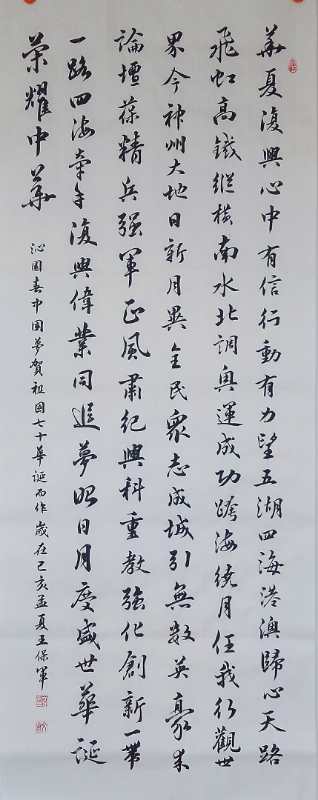 華夏復興心中有信行動有力望五湖四海港澳歸心天路
飛虹高鐵縱橫南水北調奧運成功跨海繞月任我行觀世
界今神州大地日新月異全民眾志成城引無數英豪來
論壇葆精兵强軍正風肅紀興科重教強化創新一帶
一路四海牽手復興偉業同追夢昭日月慶盛世華誕
榮耀中華
沁園春中國夢賀祖國七十華誕而作歲在己亥孟夏王保軍